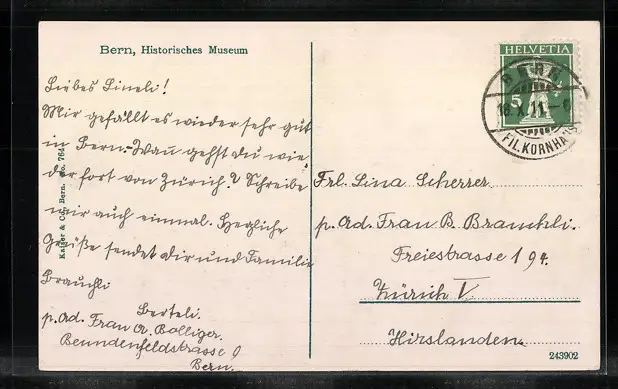 Bern, Historisches Museum
Liebes Lineli!
Mir gefällt es wieder sehr gut
in Bern. Wann gehst du wie-
der fort von Zürich? Schreibe
mir auch einmal. Herzliche
Grüße sendet dir und Familie
Brauchli
Berteli.
p. Ad. Frau A. Bolliger.
Beundenfeldstrasse 9
Bern.
Kaiser & Co., Bern. No. 764
HELVETIA
5
BERN
18.X.11.-6
FIL.KORNHAUS
Frl. Lina Scherrer.
p. Ad. Frau B. Brauchli.
Freiestrasse 194.
Zürich V
Hirslanden.
243902